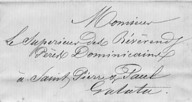 Monsieur
le Supérieur des Révérends
Pères Dominicains
à Saint Pierre & Paul
Galata